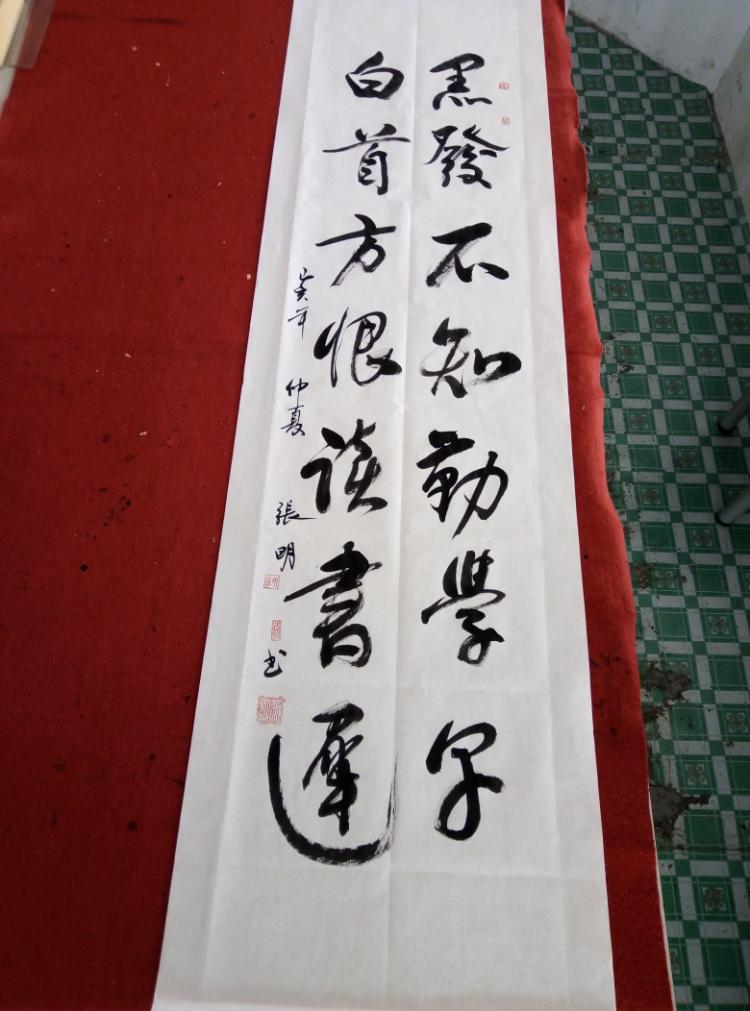 黑發不知勤學早
白首方恨讀書遲
亥年 仲夏 張明 书